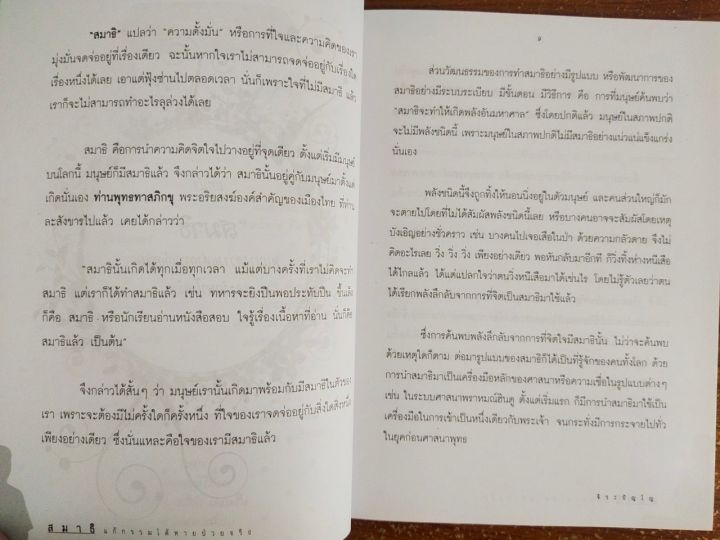 "สมาธิ" แปลว่า "ความตั้งมั่น" หรือการที่ใจและความคิดของเรา
มุ่งมั่นจดจ่ออยู่ที่เรื่องเดียว ฉะนั้นหากใจเราไม่สามารถจดจ่ออยู่กับเรื่องใด
เรื่องหนึ่งได้เลย เอาแต่ฟุ้งซ่านไปตลอดเวลา นั่นก็เพราะใจที่ไม่มีสมาธิ แล้ว
เราก็จะไม่สามารถทำอะไรลุล่วงได้เลย
สมาธิ คือการนำความคิดจิตใจไปวางอยู่ที่จุดเดียว ตั้งแต่เริ่มมีมนุษย์
บนโลกนี้ มนุษย์ก็มีสมาธิแล้ว จึงกล่าวได้ว่า สมาธินั้นอยู่คู่กับมนุษย์มาตั้งแต่
เกิดนั่นเอง ท่านพุทธทาสภิกขุ พระอริยสงฆ์องค์สำคัญของเมืองไทย ที่ท่าน
ละสังขารไปแล้ว เคยได้กล่าวว่า
"สมาธินั้นเกิดได้ทุกเมื่อทุกเวลา แม้แต่บางครั้งที่เราไม่คิดจะทำ
สมาธิ แต่เราก็ได้ทำสมาธิแล้ว เช่น ทหารจะยิงปืนพอประทับปืน ขึ้นเล็ง
ก็คือ สมาธิ หรือนักเรียนอ่านหนังสือสอบ ใจรู้เรื่องเนื้อหาที่อ่าน นั่นก็คือ
สมาธิแล้ว เป็นต้น"
จึงกล่าวได้สั้นๆ ว่า มนุษย์เรานั้นเกิดมาพร้อมกับมีสมาธิในตัวของ
เรา เพราะจะต้องมีไม่ครั้งใดก็ครั้งหนึ่ง ที่ใจของเราจดจ่ออยู่กับสิ่งใดสิ่งหนึ่ง
เพียงอย่างเดียว ซึ่งนั่นแหละคือใจของเรามีสมาธิแล้ว
สมาธิ แก้กรรมได้หายป่วยจริง
๑
ส่วนวัฒนธรรมของการทำสมาธิอย่างมีรูปแบบ หรือพัฒนาการของ
สมาธิอย่างมีระบบระเบียบ มีขั้นตอน มีวิธีการ คือ การที่มนุษย์ค้นพบว่า
"สมาธิจะทำให้เกิดพลังอันมหาศาล" ซึ่งโดยปกติแล้ว มนุษย์ในสภาพปกติ
จะไม่มีพลังชนิดนี้ เพราะมนุษย์ในสภาพปกติไม่มีสมาธิอย่างแน่วแน่แข็งแกร่ง
นั่นเอง
พลังชนิดนี้จึงถูกทิ้งให้นอนนิ่งอยู่ในตัวมนุษย์ และคนส่วนใหญ่ก็มัก
จะตายไปโดยที่ไม่ได้สัมผัสพลังชนิดนี้เลย หรือบางคนอาจจะสัมผัสโดยเหตุ
บังเอิญอย่างชั่วคราว เช่น บางคนไปเจอเสือในป่า ด้วยความกลัวตาย จึงไม่
คิดอะไรเลย วิ่ง วิ่ง วิ่ง เพียงอย่างเดียว พอหันกลับมาอีกที ก็วิ่งทิ้งห่างหนีเสือ
ได้ไกลแล้ว ได้แต่แปลกใจว่าตนวิ่งหนีเสือมาได้เช่นไร โดยไม่รู้ตัวเลยว่าตน
ได้เรียกพลังลึกลับจากการที่จิตเป็นสมาธิมาใช้แล้ว
ซึ่งการค้นพบพลังลึกลับจากการที่จิตใจมีสมาธินั้น ไม่ว่าจะค้นพบ
ด้วยเหตุใดก็ตาม ต่อมารูปแบบของสมาธิก็ได้เป็นที่รู้จักของคนทั้งโลก ด้วย
การนำสมาธิมาเป็นเครื่องมือหลักของศาสนาหรือความเชื่อในรูปแบบต่างๆ
เช่น ในระบบศาสนาพราหมณ์ฮินดู ตั้งแต่เริ่มแรก ก็มีการนำสมาธิมาใช้เป็น
เครื่องมือในการเข้าเป็นหนึ่งเดียวกับพระเจ้า จนกระทั่งมีการกระจายไปทั่ว
ในยุคก่อนศาสนาพุทธ